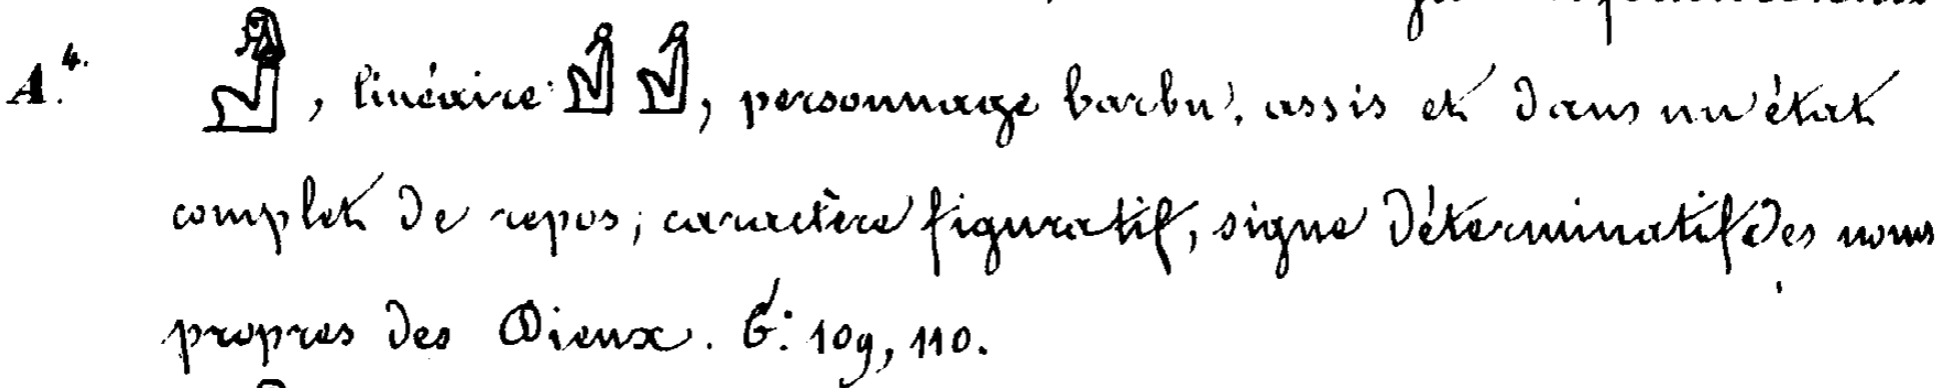 A.⁴ 𓀭, linéaire 𓀭 𓀭, personnage barbu, assis et dans un état
complet de repos; caractère figuratif, signe déterminatif des noms
propres des Dieux. G: 109, 110.